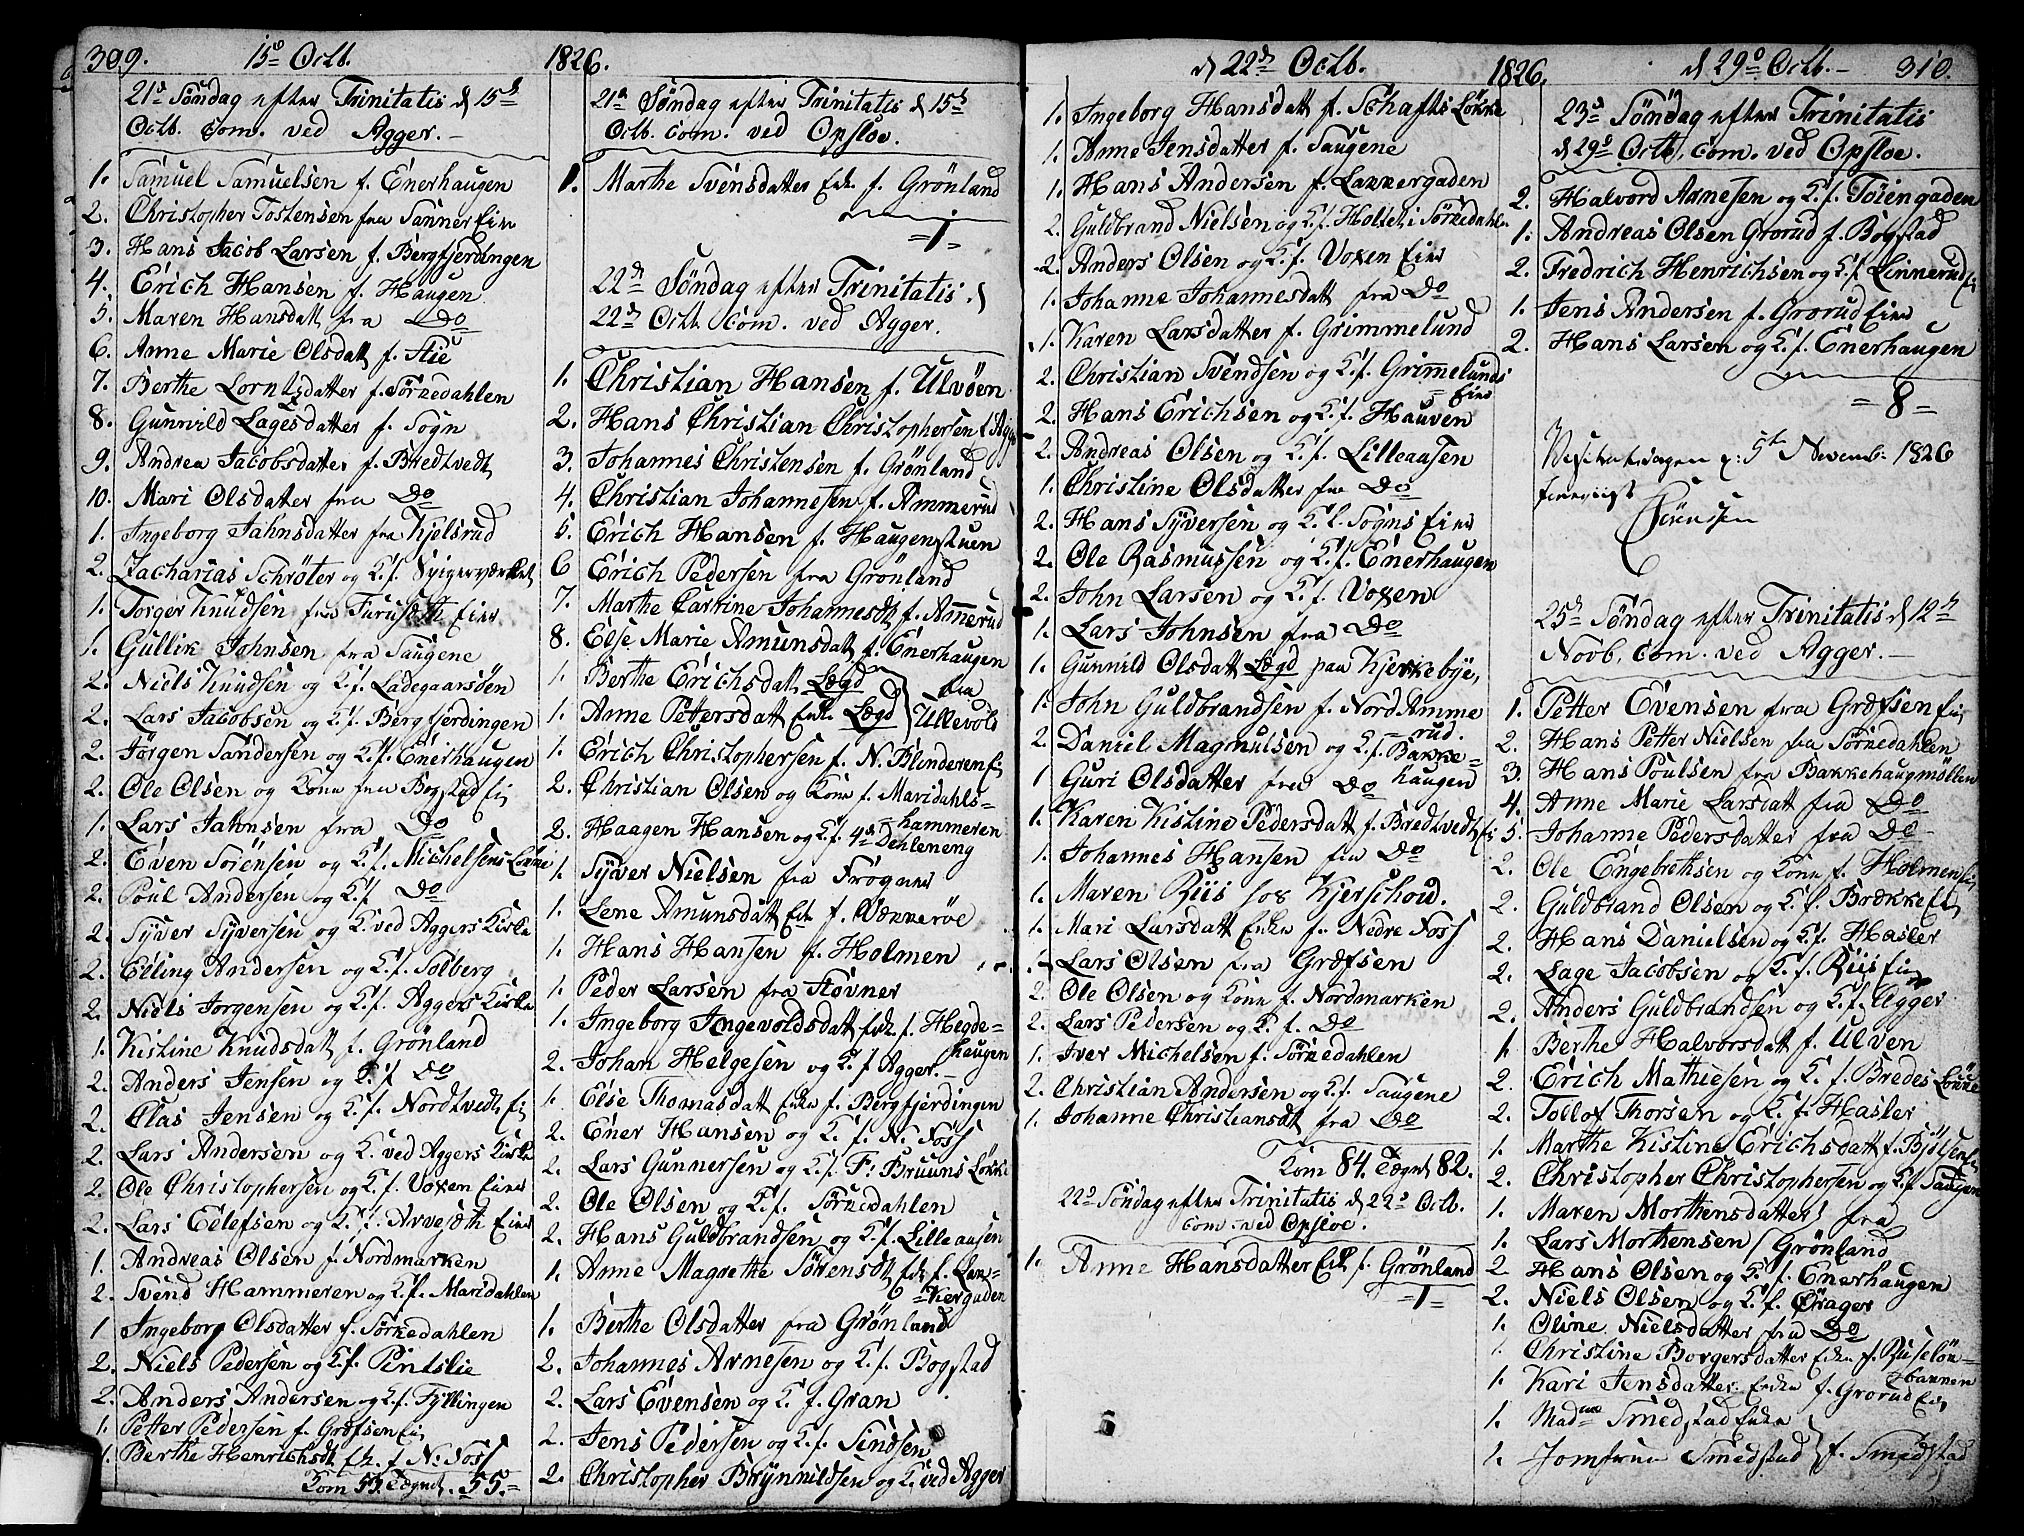 309. 15de Octb. 1826.
21de Søndag efter Trinitatis d 15de
Octb. com. ved Agger.
1. Samuel Samuelsen f. Enerhaugen
2. Christopher Tostensen fra Sanner Eier
3. Hans Jacob Larsen f. Bergfjerdingen
4. Erich Hansen f. Haugen
5. Maren Hansdatt fra Do
6. Anne Marie Olsdatt f. Stie
7. Berthe Lorntzdatter f. Sørkedahlen
8. Gunnild Lagesdatter f. Sogn
9. Andrea Jacobsdatter f. Bredtvedt
10. Mari Olsdatter fra Do
1. Ingeborg Jahnsdatter fra Kjelsrud
2. Zacharias Schrøter og K. f. Spigerværket
1. Torger Knudsen fra Furuseth Eier
1. Gullik Johnsen fra Saugene
2. Niels Knudsen og K. f. Ladegaarsøen
2. Lars Jacobsen og K. f. Bergfjerdingen
2. Jørgen Sandersen og K. f. Enerhaugen
2. Ole Olsen og Kone fra Bogstad Ei
1. Lars Jahnsen fra Do
2. Even Sørensen og K. f. Michelsens Løkke
2. Poul Andersen og K. f. Do
2. Syver Syversen og K. ved Aggers Kirke
2. Elling Andersen og K. f. Solberg
2. Niels Jørgensen og K. f. Aggers Kirke
1. Kistine Knudsdatt f. Grønland
2. Anders Jensen og K. f. Do
2. Clas Jensen og K. f. Nordtvedt Ei
2. Lars Andersen og K. ved Aggers Kirke
2. Ole Christophersen og K. f. Voxen Eier
2. Lars Eelefsen og K. f. Arvesæth Eier
1. Andreas Olsen f. Nordmarken
2. Svend Hammeren og K. f. Maridahlen
1 Ingeborg Olsdatter f. Sørkedahlen
2. Niels Pedersen og K. f. Pintslie
2. Anders Andersen og K. f. Fyllingen
1. Petter Pedersen f. Grøfsen Ei
1. Berthe Henrichsdt Ek. f. N: Foss
Kom 55. Tegnt. 55.
21de Søndag efter Trinitatis d 15de
Octb. com. ved Opsloe.
1. Marthe Svensdatter Enk f. Grönland
=1=
22de Søndag efter Trinitatis. d
22de Octb. com. ved Agger.
1. Christian Hansen f. Ulvöen
2. Hans Christian Christophersen f. Agg
3. Johannes Christensen f. Grønland
4. Christian Johannesen f. Ammerud
5. Erich Hansen f. Haugenstuen
6 Erich Pedersen fra Grønland
7. Marthe Catrine Johannesdt f. Ammerud
8. Else Marie Amunsdatt f. Enerhaugen
1. Berthe Erichsdatt Lægd } fra
1. Anne Pettersdatt Enk. Lægd } Ullevold
1. Erich Christophersen f. N. Blinderen Ei
2. Christian Olsen og Kone f. Maridahls-
hammeren
2. Haagen Hansen og K. f. 4de Dehleneng
1. Syver Nielsen fra Frogner
1. Lene Amunsdatt Ek f. Vækkerøe
1. Hans Hansen f. Holmen
1. Peder Larsen fra Stovner
1. Ingeborg Ingevoldsdatt Enk. f. Hegde-
haugen
2. Johan Helgesen og K. f. Agger.
1. Else Thomasdatt Enke f. Bergfjerdingen
2. Ener Hansen og K. f. N. Foss
2. Lars Gunnersen og K. f. F: Bruuns Løkke
2. Ole Olsen og K. f. Sørkedahlen
2. Hans Guldbrandsen og K. f. Lilleausen
1. Anne Magrethe Sörensdt Enk f. Lak-
kergaden
1. Berthe Olsdatter fra Grönland
2. Johannes Arnesen og K. f. Bogstad
2. Lars Evensen og K. f. Gran
2. Jens Pedersen og K. f. Sindsen
2. Christopher Brynnildsen og K. ved Agger
d 22de Octb. 1826. d 29de Octb. 310.
1. Ingeborg Hansdatt f. Schafts Løkke
1. Anne Jensdatter f. Saugene
1. Hans Andersen f. Lakkergaden
2. Guldbrand Nielsen og K. f. Holset i Sørkedahle
2. Anders Olsen og K. f. Voxen Eier
1. Johanne Johannesdatt fra Do
1. Karen Larsdatter f. Grimmelund
2. Christian Svendsen og K. f. Grimmelunds
Eier
2. Hans Erichsen og K. f. Hauven
2. Andreas Olsen og K. f. Lilleausen
1. Christine Olsdatter fra Do
2. Hans Syversen og K. f. Sogns Eier
2. Ole Rasmussen og K. f. Enerhaugen
2. John Larsen og K. f. Voxen
1. Lars Johnsen fra Do
1. Gunnild Olsdatt Lægd paa Kjerkebye,
1. John Guldbrandsen f. Nord Amme
rud.
2. Daniel Magnulsen og K. f. Bakke-
haugen
1 Guri Olsdatter fra Do
1. Karen Kistine Pedersdatt f. Bredtvedt Ei
1. Johannes Hansen fra Do
1. Maren Riis hos Kjerschow.
1. Mari Larsdatt Enke f. Nedre Foss
1. Lars Olsen fra Grøfsen
2. Ole Olsen og Kone f. Nordmarken
2. Lars Pedersen og K. f. Do
1. Iver Michelsen f. Sørkedahlen
2. Christian Andersen og K. f. Saugene
1. Johanne Christiansdt fra Do
Kom 84. Tegnt 82.
22de Søndag efter Trinitatis d 22de Octb.
com. ved Opsloe.
1. Anne Hansdatter Enk f. Grönland
=1=
23de Søndag efter Trinitatis
d 29de Octb. com. ved Opsloe.
2. Halvord Aanesen og K. f. Töiengaden
1. Andreas Olsen Grorud f. Bogstad
2. Fredrich Henrichsen og K. f. Linnerud Ei
1. Jens Andersen f. Grorud Eier
2. Hans Larsen og K. f. Enerhaugen
=8=
5te Novemb: 1826
Sörensen
25de Søndag efter Trinitatis d 12te
Novb. com. ved Agger.
1. Petter Evensen fra Grøfsen Ei
2. Hans Petter Nielsen fra Sørkedahlen
3. Hans Poulsen fra Bakkehaugmöllen
4. Anne Marie Larsdatt fra Do
5. Johanne Pedersdatter fra Do
2. Ole Engebrethsen og Kone f. Holmen Ei
2. Guldbrand Olsen og K. f. Brække Ei
2. Hans Danielsen og K. f. Hasler
2. Lage Jacobsen og K. f. Riis Ei
2. Anders Guldbrandsen og K. f. Agger
1. Berthe Halvorsdatt f. Ulven
2. Erich Mathiesen og K. f. Bredes Løkke
2. Tollof Thorsen og K. f. Hasler
1. Marthe Kistine Erichsdatt f. Bjölsen Ei
2. Christopher Christophersen og K. f. Saugene
1. Maren Morthensdatter } fra
1. Lars Morthensen } Grönland
2 Hans Olsen og K. f. Enerhaugen
2. Niels Olsen og K. f. Örager
1. Oline Nielsdatter fra Do
1. Christine Borgersdatter Enke f. Ruseløk-
bakken
1. Kari Jensdatter Enke f. Grorud Ei
1. Madme Smedstad Enke }
1. Jomfrue Smedstad } f. Smedstad